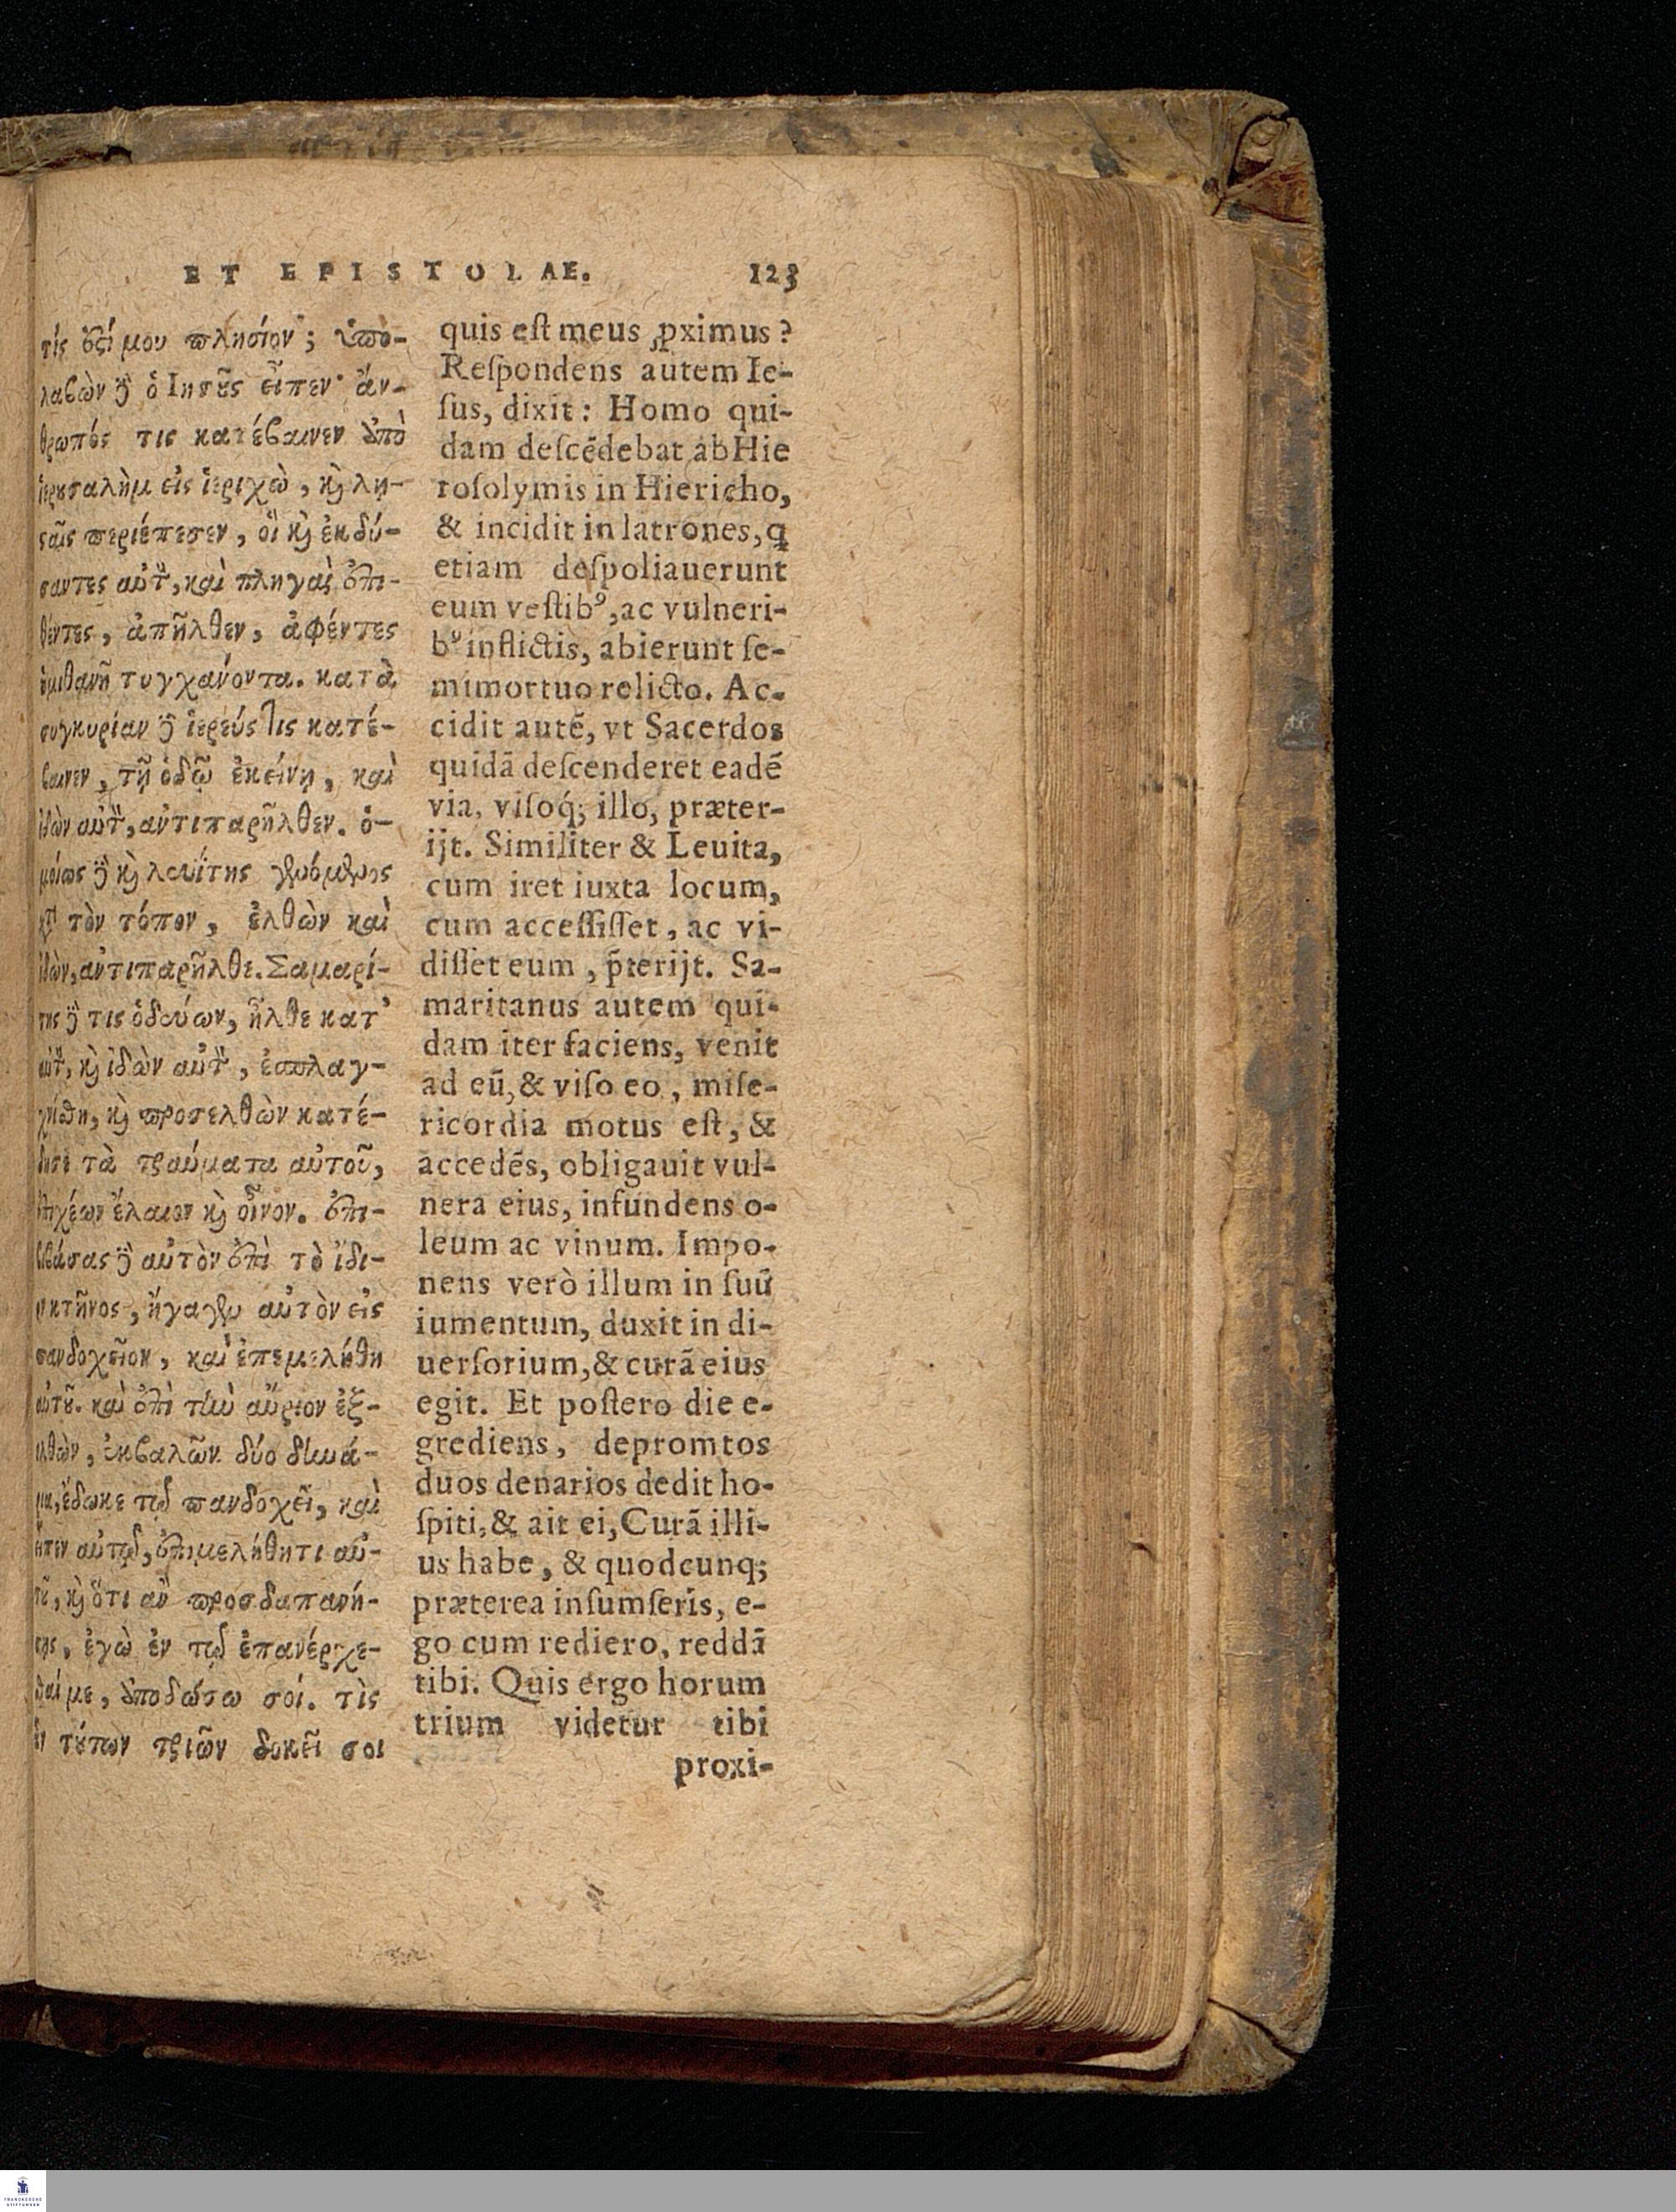 ET EPISTOLAE. 123
τίς ἐϛί μου πλησίον; ὑπο-
λαβὼν δὲ ὁ Ιησοῦς εἶπεν· ἄν-
θρωπός τις κατέβαινεν ἀπὸ
ἱερουσαλὴμ εἰς ἱεριχὼ, καὶ λῃ-
ϛαῖς περιέπεσεν, οἳ καὶ ἐκδύ-
σαντες αὐτὸν, καὶ πληγὰς ἐπι-
θέντες, ἀπῆλθεν, ἀφέντες
ἡμιθανῆ τυγχάνοντα. κατὰ
συγκυρίαν δὲ ἱερεύς τις κατέ-
βαινεν, τῇ ὁδῷ ἐκείνῃ, καὶ
ἰδὼν αὐτὸν, ἀντιπαρῆλθεν. ὁ-
μοίως δὲ καὶ λευΐτης γενόμενος
κατὰ τὸν τόπον, ἐλθὼν καὶ
ἰδὼν, ἀντιπαρῆλθε. Σαμαρί-
της δέ τις ὁδεύων, ἦλθε κατ'
αὐτὸν, καὶ ἰδὼν αὐτὸν, ἐσπλαγ-
χνίσθη, καὶ προσελθὼν κατέ-
δησε τὰ τραύματα αὐτοῦ,
ἐπιχέων ἔλαιον καὶ οἶνον. ἐπι-
βιβάσας δὲ αὐτὸν ἐπὶ τὸ ἴδι-
ον κτῆνος, ἤγαγεν αὐτὸν εἰς
πανδοχεῖον, καὶ ἐπεμελήθη
αὐτοῦ. καὶ ἐπὶ τὴν αὔριον ἐξ-
ελθὼν, ἐκβαλὼν δύο δηνά-
ρια, ἔδωκε τῷ πανδοχεῖ, καὶ
εἶπεν αὐτῷ, ἐπιμελήθητι αὐ-
τοῦ, καὶ ὅτι ἂν προσδαπανή-
σῃς, ἐγὼ ἐν τῷ ἐπανέρχε-
σθαί με, ἀποδώσω σοί. τίς
οὖν τούτων τριῶν δοκεῖ σοι
quis eſt meus ꝓximus?
Reſpondens autem Ie-
ſus, dixit: Homo qui-
dam deſcēdebat ab Hie
roſolymis in Hiericho,
& incidit in latrones, q
etiam deſpoliauerunt
eum veſtibꝰ, ac vulneri-
bꝰ inflictis, abierunt ſe-
mimortuo relicto. Ac-
cidit autē, vt Sacerdos
quidā deſcenderet eadē
via, viſoq́; illo, præter-
ijt. Similiter & Leuita,
cum iret iuxta locum,
cum acceſſiſſet, ac vi-
diſſet eum, p̄terijt. Sa-
maritanus autem qui-
dam iter faciens, venit
ad eū, & viſo eo, miſe-
ricordia motus eſt, &
accedēs, obligauit vul-
nera eius, infundens o-
leum ac vinum. Impo-
nens verò illum in ſuū
iumentum, duxit in di-
uerſorium, & curā eius
egit. Et poſtero die e-
grediens, depromtos
duos denarios dedit ho-
ſpiti, & ait ei, Curā illi-
us habe, & quodcunq;
præterea inſumſeris, e-
go cum rediero, reddā
tibi. Quis ergo horum
trium videtur tibi
proxi-
FRANCKESCHE
STIFTUNGEN